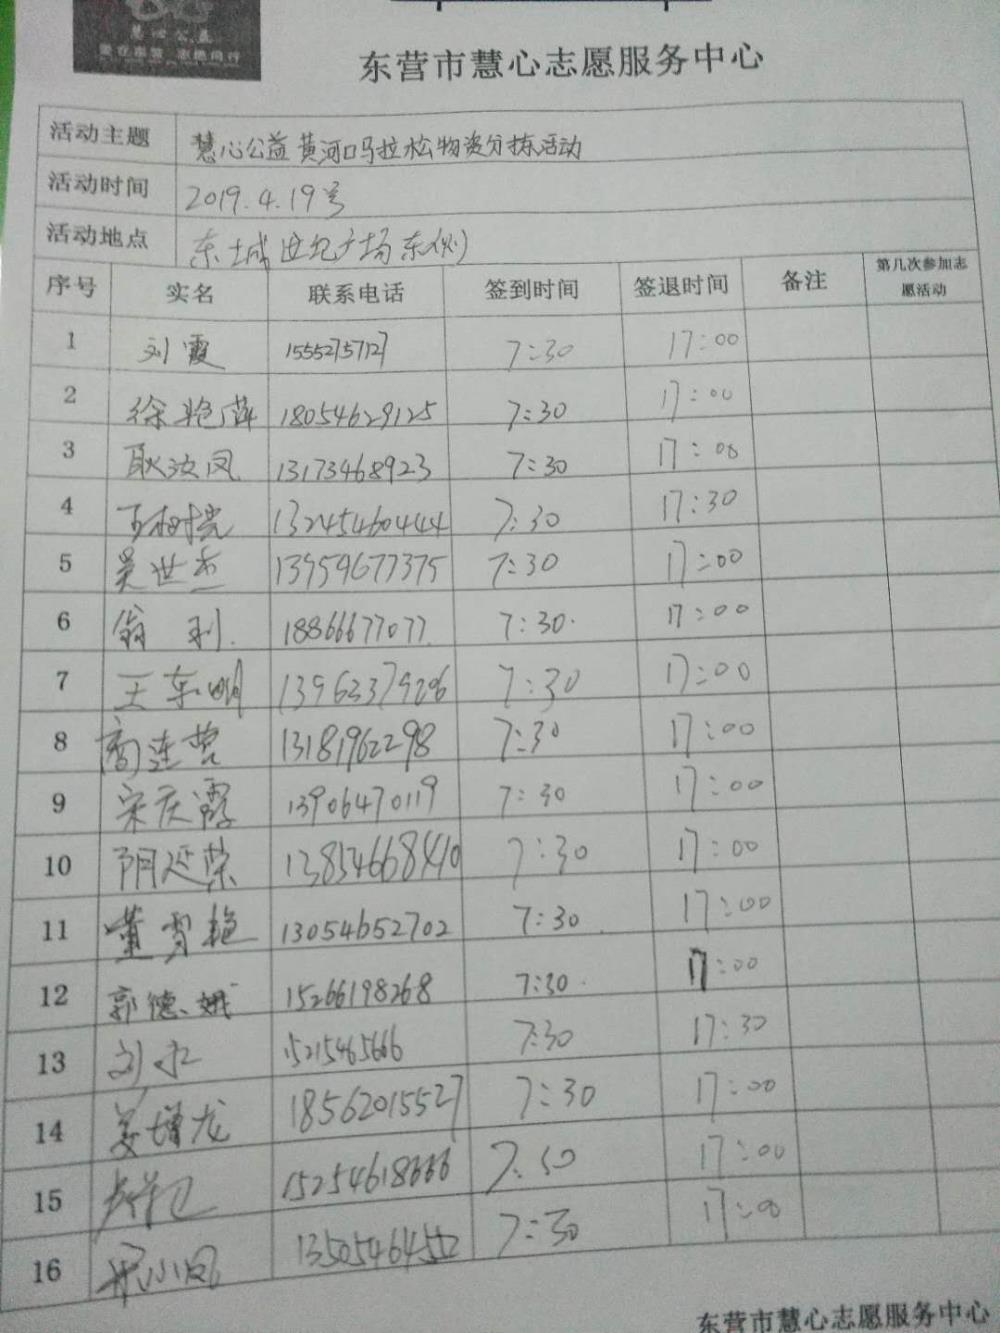 慧心公益
东营市慧心志愿服务中心
活动主题 慧心公益黄河口马拉松物资分拣活动
活动时间 2019.4.19号
活动地点 东城世纪广场东侧
序号 实名 联系电话 签到时间 签退时间 备注 第几次参加志愿活动
1 刘霞 15552757127 7:30 17:00
2 徐艳萍 18054629125 7:30 17:00
3 耿汝凤 13173468923 7:30 17:00
4 13245460444 7:30 17:30
5 吴世杰 13954677375 7:30 17:00
6 翁利 18866677077 7:30 17:00
7 王东明 13963379206 7:30 17:00
8 商连营 13181962298 7:30 17:00
9 宋庆霞 13906470119 7:30 17:00
10 阴延荣 13854668410 7:30 17:00
11 董雪艳 13054652702 7:30 17:00
12 郭德娥 15266198268 7:30 17:00
13 15215465666 7:30 17:30
14 姜增龙 18562015527 7:30 17:00
15 15254618666 7:30 17:00
16 宋小凤 7:30 17:00
东营市慧心志愿服务中心